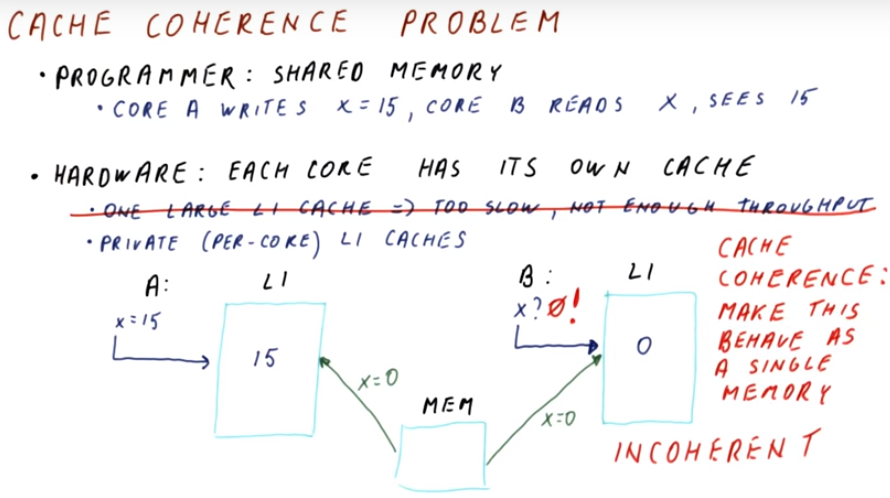 CACHE COHERENCE PROBLEM
• PROGRAMMER: SHARED MEMORY
• CORE A WRITES X=15, CORE B READS X, SEES 15
• HARDWARE: EACH CORE HAS ITS OWN CACHE
• ONE LARGE L1 CACHE => TOO SLOW, NOT ENOUGH THROUGHPUT
• PRIVATE (PER-CORE) L1 CACHES
A:
L1
X=15
15
X=0
MEM
B:
X? 0!
L1
0
X=0
CACHE
COHERENCE:
MAKE THIS
BEHAVE AS
A SINGLE
MEMORY
INCOHERENT